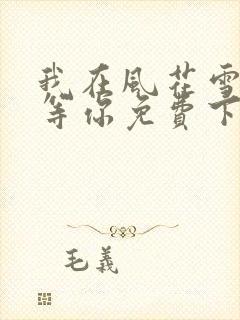 我在風花雪
等你免費下
毛義